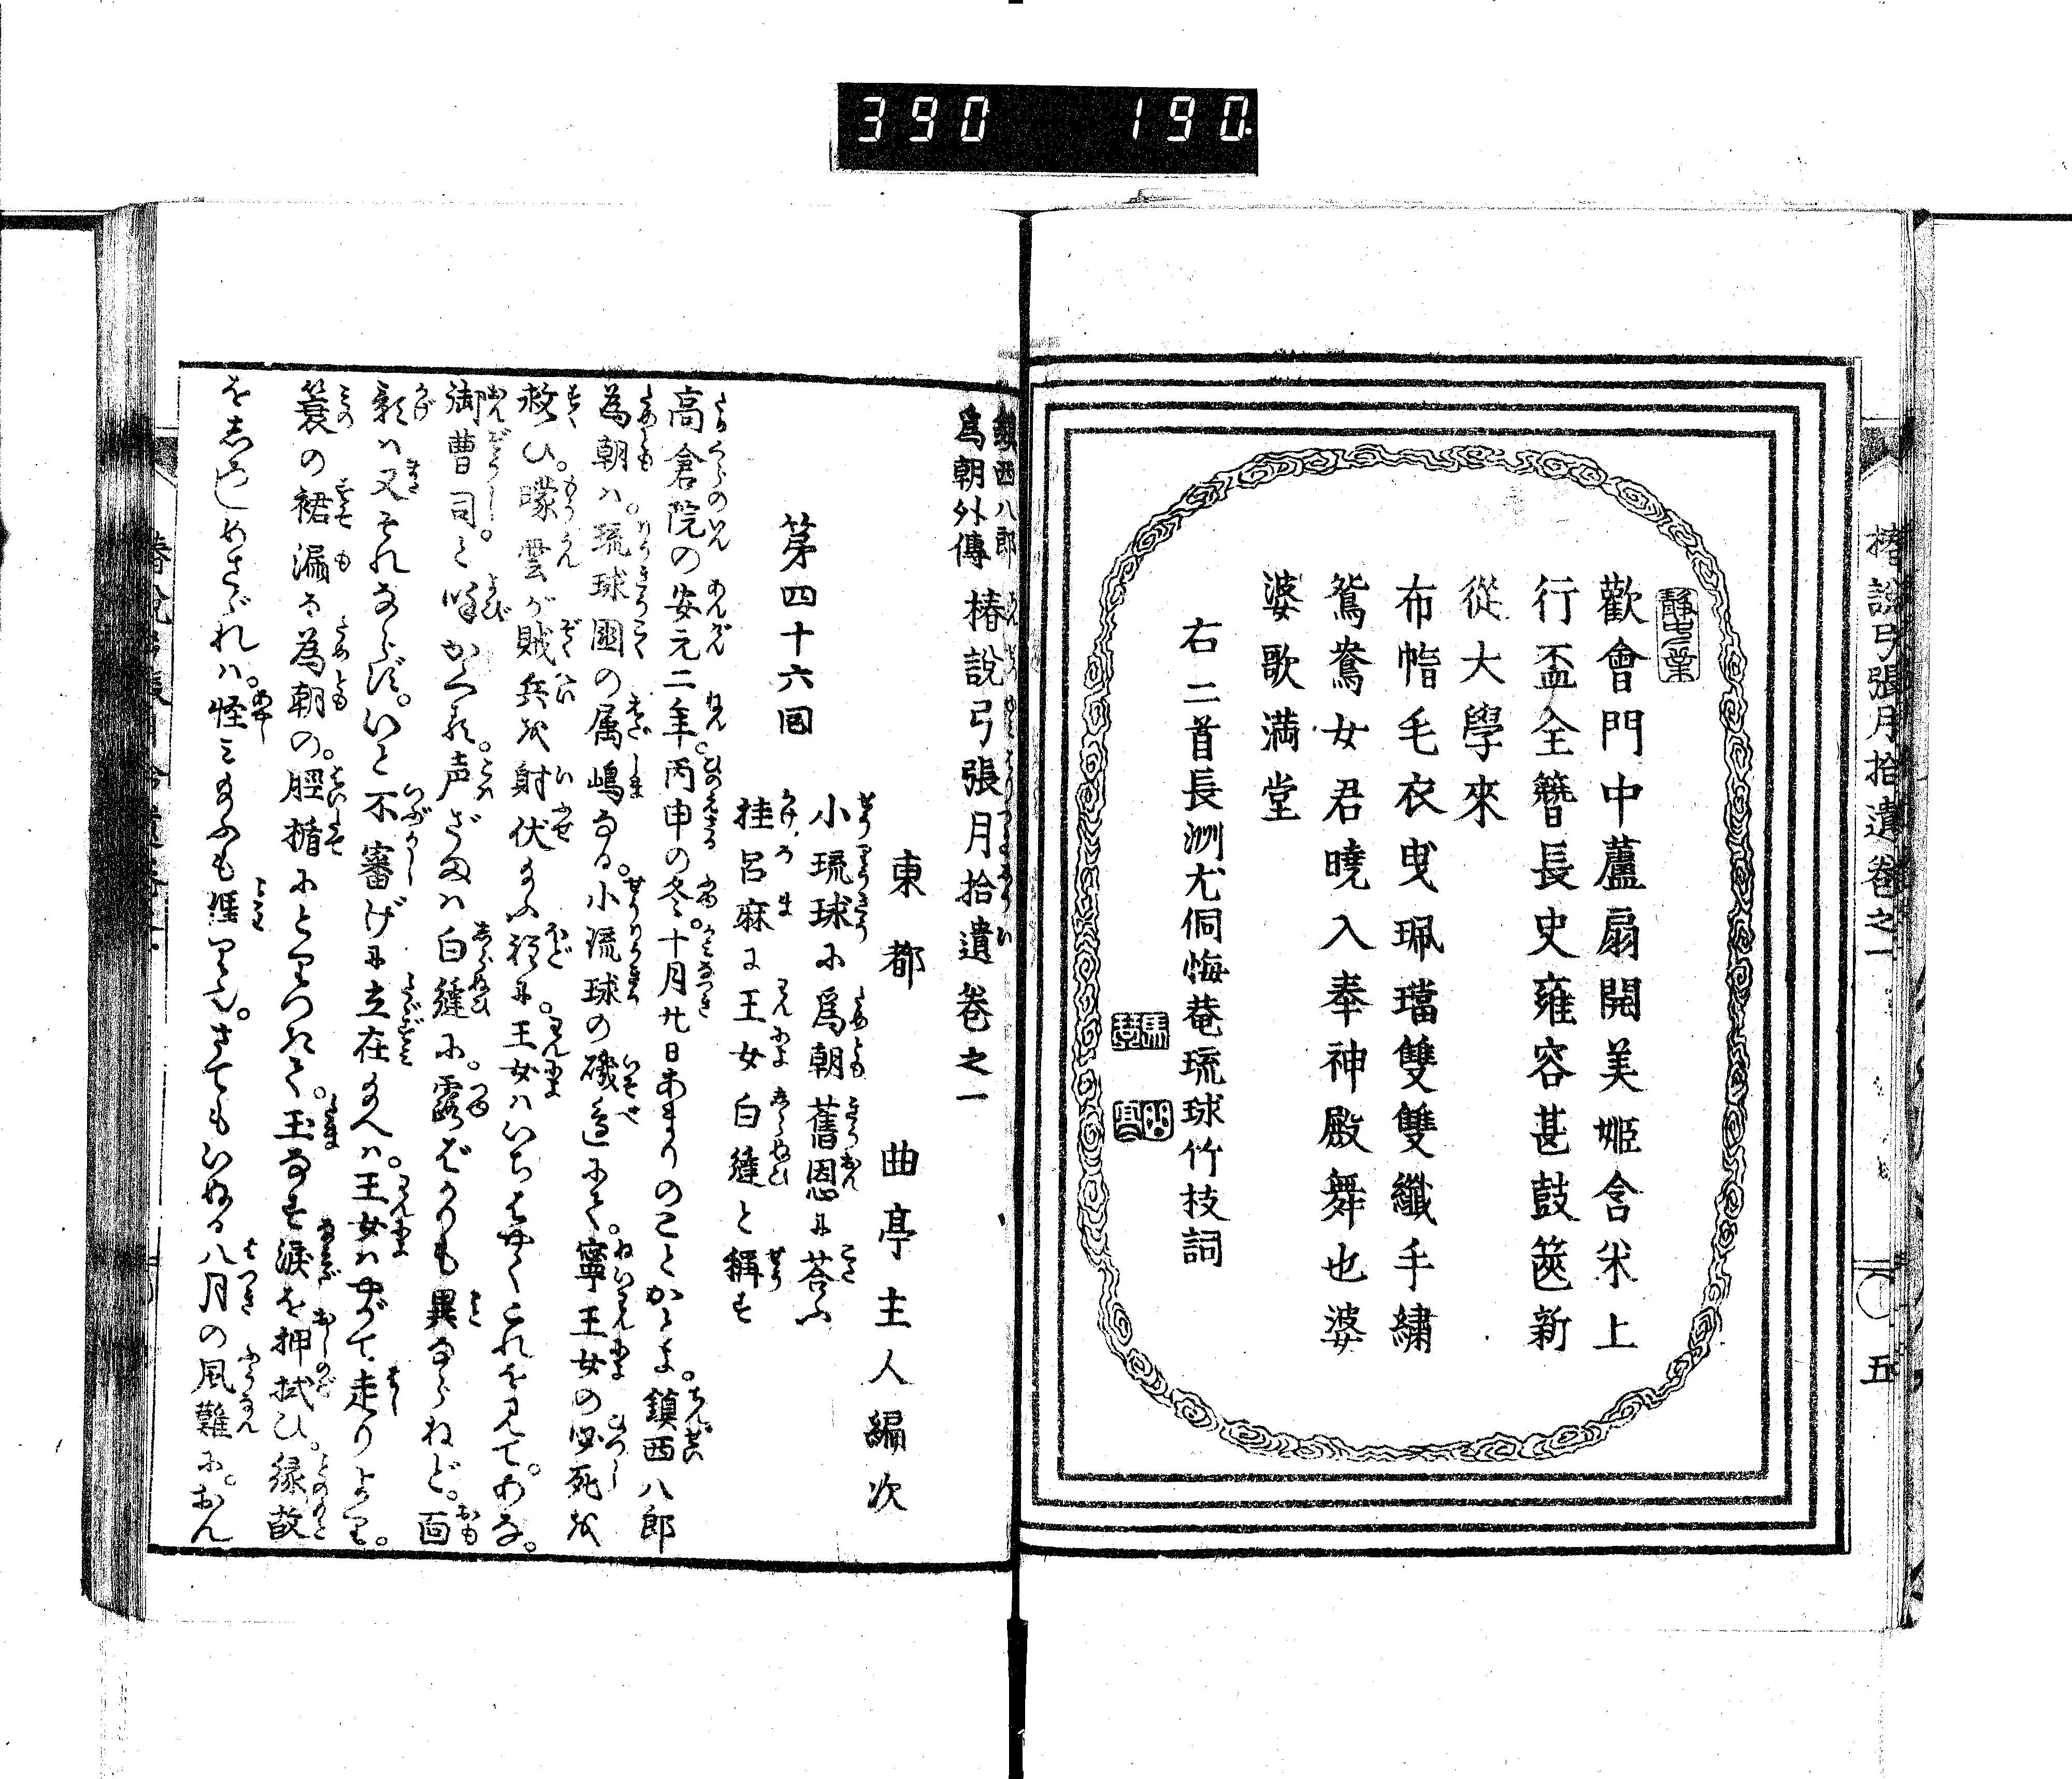 390 190
椿説弓張月拾遺巻之一 ○ 五
歡會門中蘆扇開美姫含米上
行盃全簪長史雍容甚鼓篋新
從大學來
布帽毛衣曳珮璫雙雙纖手繍
鴛鴦女君曉入奉神殿舞也婆
婆歌満堂
右二首長洲尤侗悔菴琉球竹技詞
鎮西八郎
爲朝外傳
椿説弓張月拾遺巻之一
東都 曲亭主人編次
第四十六回
小琉球に爲朝舊恩に荅ふ
桂呂麻に王女白縫と稱す
高倉院の安元二年。丙申の冬。十月廿日あまりのことかとよ。鎮西八郎
為朝ハ。琉球國の属嶋なる。小琉球の礒邊にて。寧王女の必死を
救ひ。曚雲が賊兵を射伏給ふ程に。王女ハいちはやくこれを見て。あな。
御曹司。と呼かくる。声ざまハ白縫に。露ばかりも異ならねど。面
影ハ又それならず。いと不審げに立在給へハ。王女ハやがて走りよりて。
簑の裙漏る為朝の。脛楯にとりつきて。玉なす涙を押拭ひ。縁故
をしろしめさゞれハ。怪み給ふも理りなり。さてもいぬる八月の風難に。おん